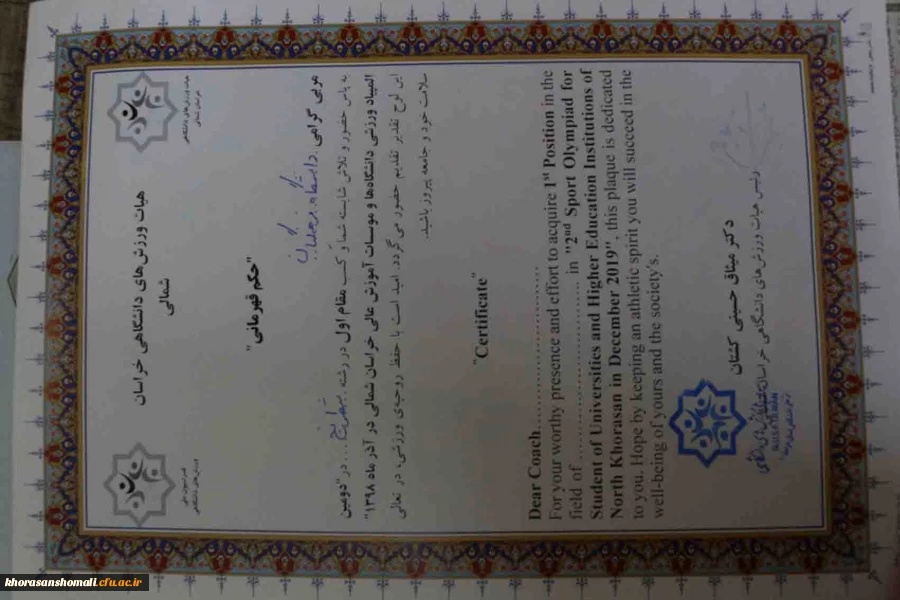 هیات ورزش‌های دانشگاهی خراسان
شمالی
"حکم قهرمانی"
مربی گرامی دانشگاه فرهنگیان
به پاس حضور و تلاش شایسته شما و کسب مقام اول در رشته ... در "دومین
المپیاد ورزشی دانشگاه‌ها و موسسات آموزش عالی خراسان شمالی در آذر ماه ۱۳۹۸"
این لوح تقدیر تقدیم حضور می گردد. امید است با حفظ روحیه‌ی ورزشی، در تعالی
سلامت خود و جامعه پیروز باشید.
"Certificate"
Dear Coach..............................
For your worthy presence and effort to acquire 1st Position in the
field of .............................. in "2nd Sport Olympiad for
Student of Universities and Higher Education Institutions of
North Khorasan in December 2019", this plaque is dedicated
to you. Hope by keeping an athletic spirit you will succeed in the
well-being of yours and the society's.
دکتر میثاق حسینی کشتان
رئیس هیات ورزش‌های دانشگاهی خراسان
khorasanshomali.cfu.ac.ir